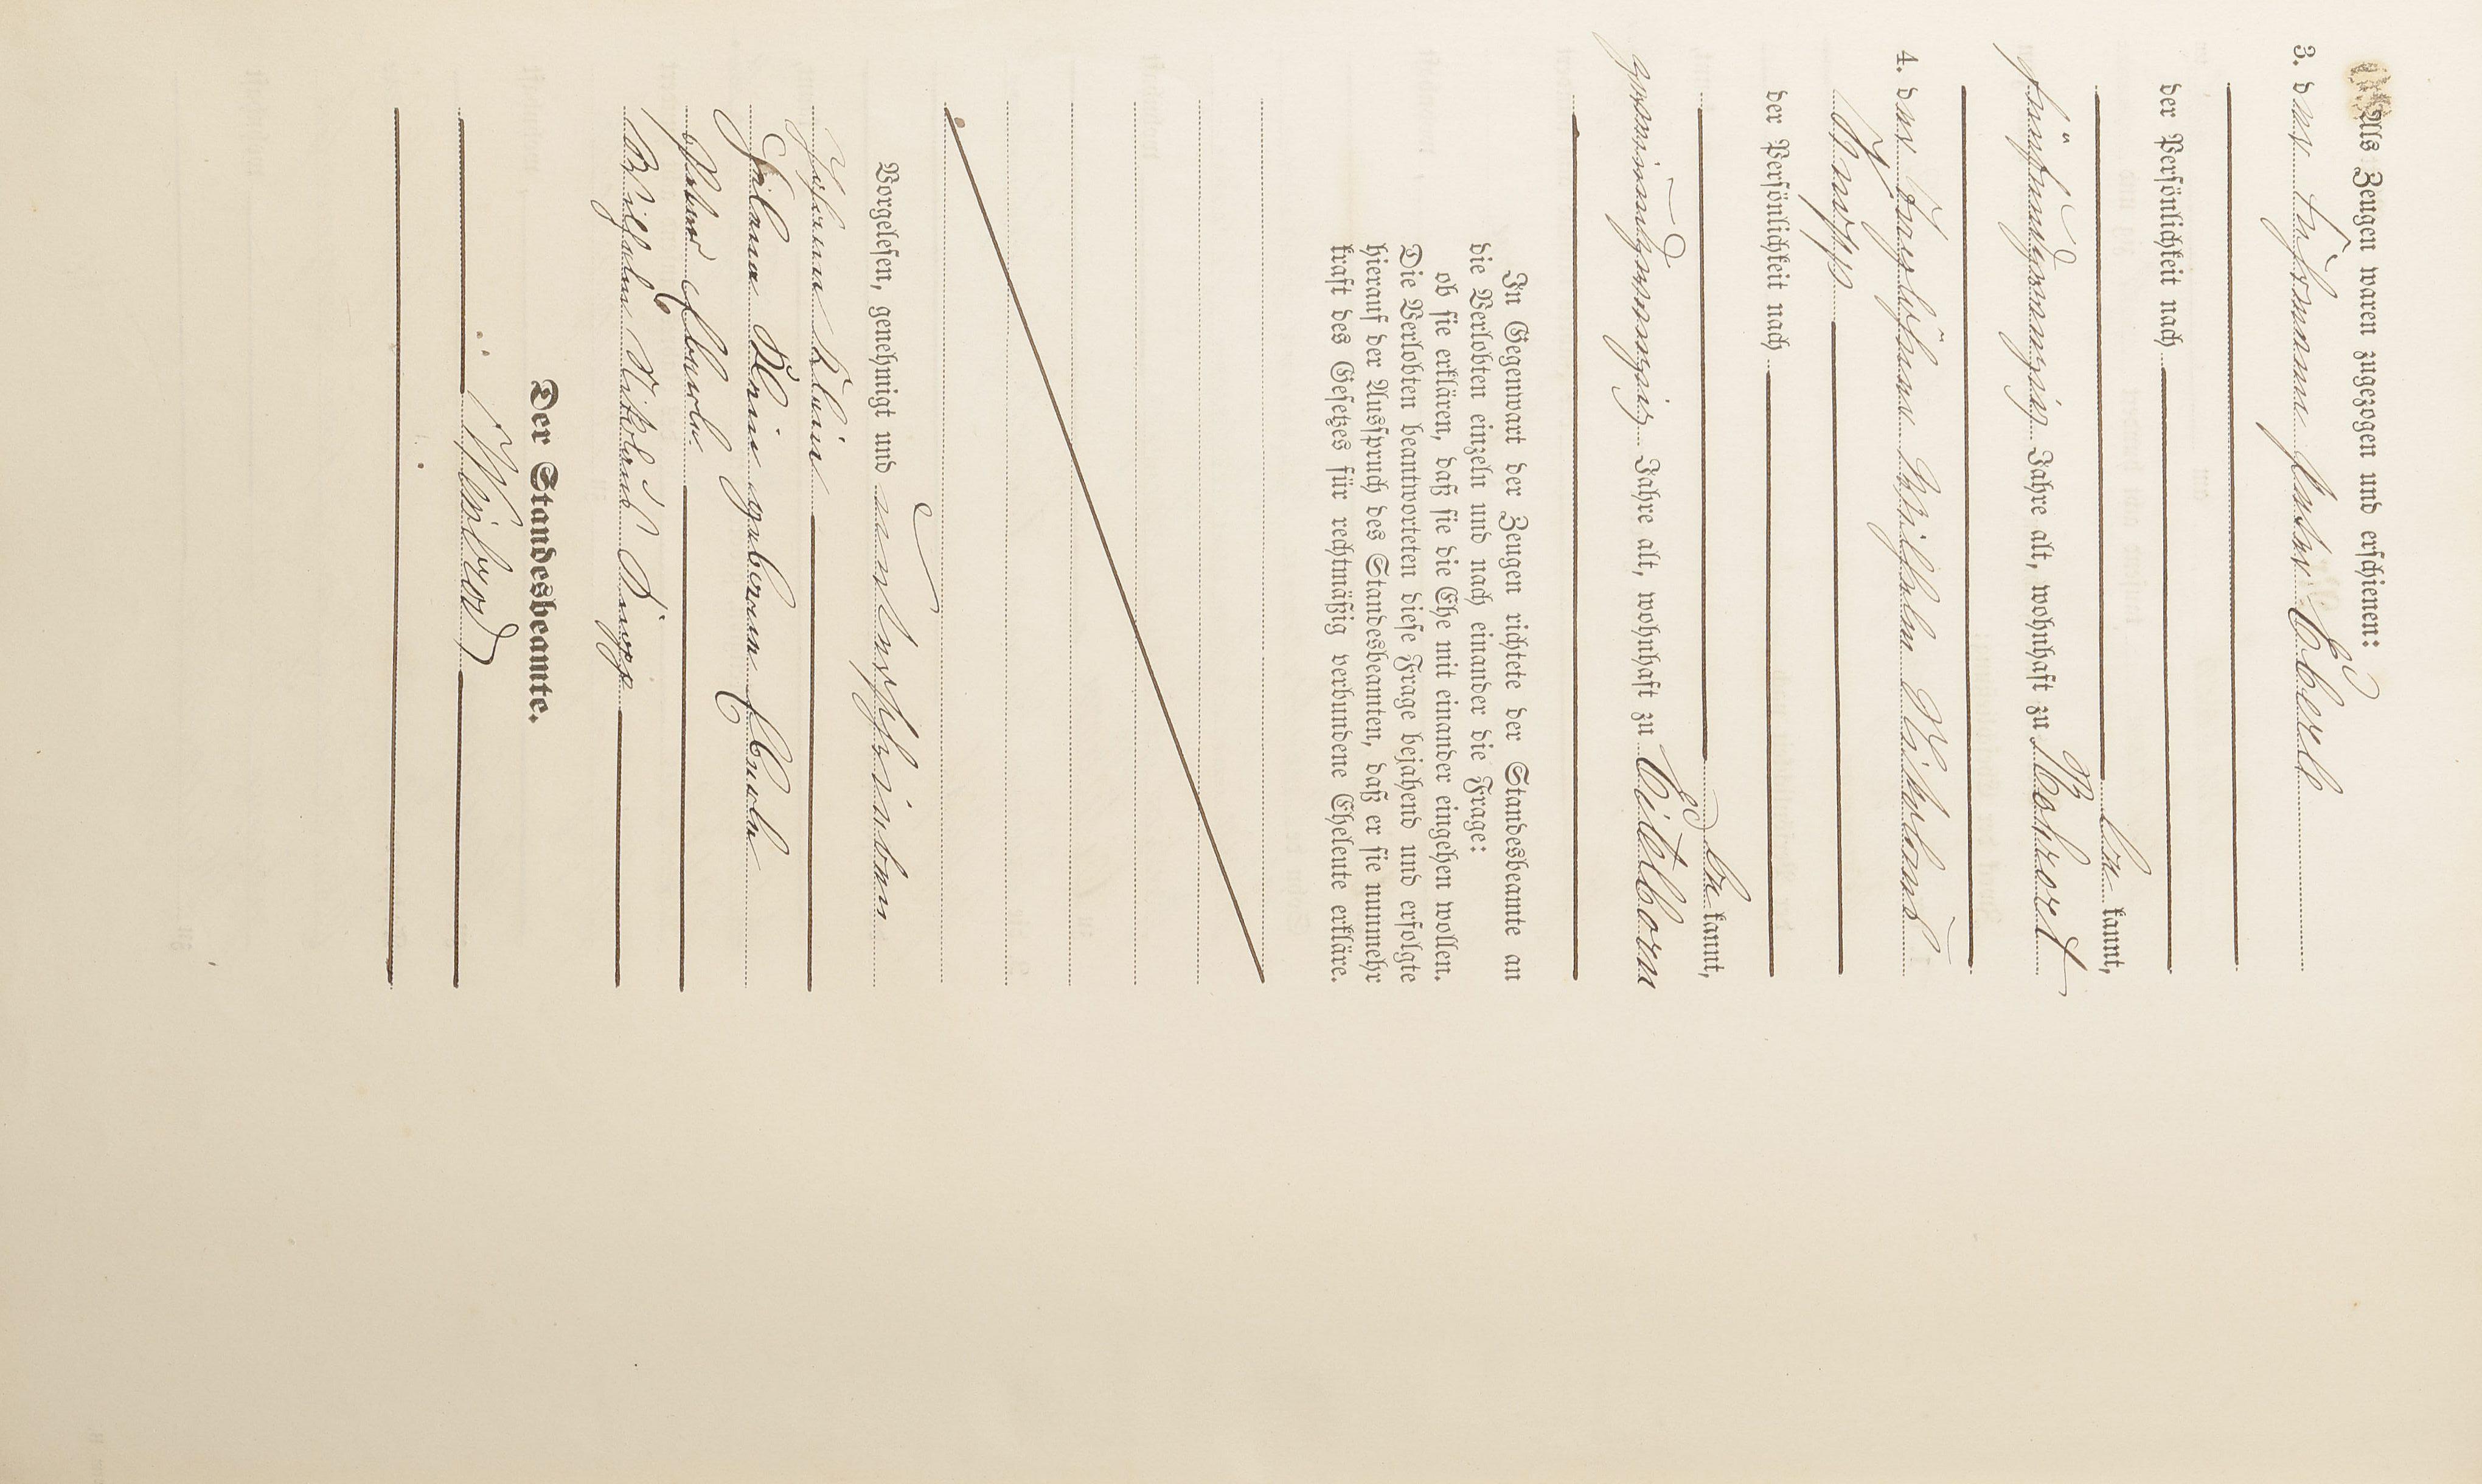 Als Zeugen waren zugezogen und erschienen:
3. der Fuhrmann Peter Eberle
der Persönlichkeit nach
be kannt,
fünfundzwanzig Jahre alt, wohnhaft zu Rohrort
4. der Tagelöhner Wilhelm Nikolaus
Knopp
der Persönlichkeit nach
be kannt,
zweiundzwanzig Jahre alt, wohnhaft zu Eitelborn
In Gegenwart der Zeugen richtete der Standesbeamte an
die Verlobten einzeln und nach einander die Frage:
ob sie erklären, daß sie die Ehe mit einander eingehen wollen.
Die Verlobten beantworteten diese Frage bejahend und erfolgte
hierauf der Ausspruch des Standesbeamten, daß er sie nunmehr
kraft des Gesetzes für rechtmäßig verbundene Eheleute erkläre.
Vorgelesen, genehmigt und unterschrieben
Johann Klein
Helena Klein geborene Eberle
Peter Eberle
Wilhelm Nikolaus Knopp
Der Standesbeamte.